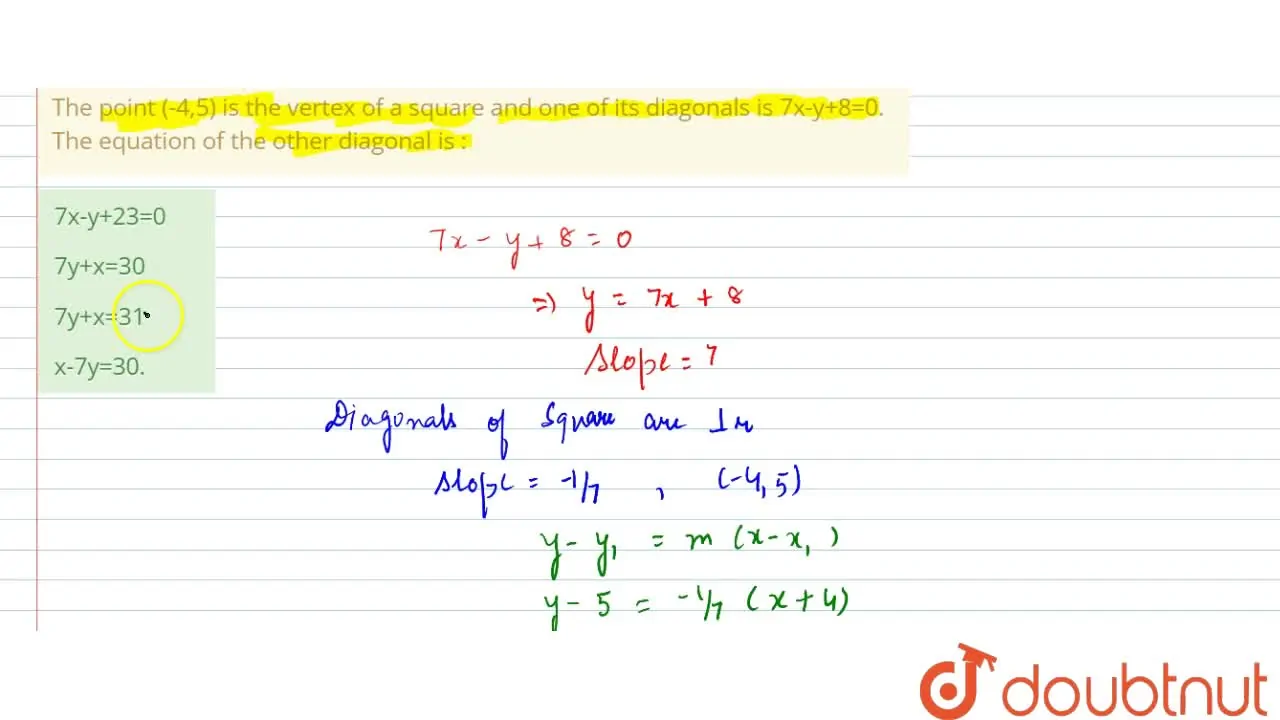 The point (-4,5) is the vertex of a square and one of its diagonals is 7x-y+8=0.
The equation of the other diagonal is :
7x-y+23=0
7y+x=30
7y+x=31
x-7y=30.
7x - y + 8 = 0
=) y = 7x + 8
Slope = 7
Diagonals of Square are ⊥r
Slope = -1/7 , (-4, 5)
y - y₁ = m (x - x₁ )
y - 5 = -1/7 (x + 4)
doubtnut